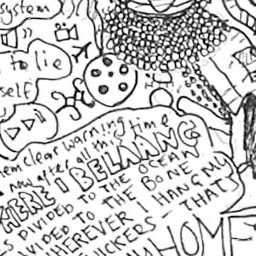 system
to lie
self
them clear warning time
my after all this
HERE I BELAANG
S DIVIDED TO THE OCEAN
VIDED TO THE BONE
HEREVER I HANG MY
ICKERS - THAT'S
HOME